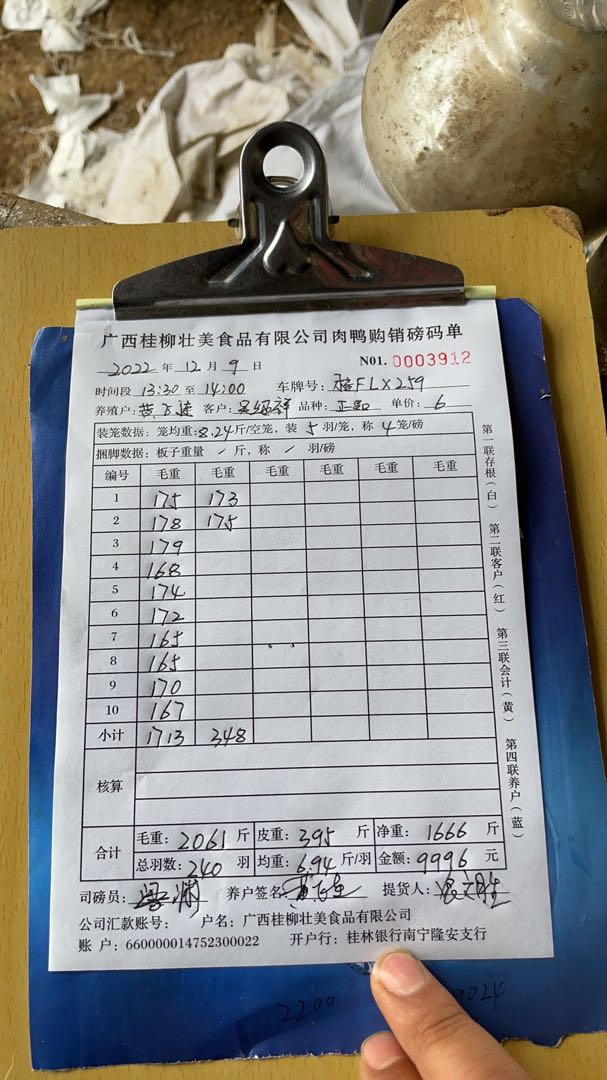 广西桂柳壮美食品有限公司肉鸭购销磅码单
2022 年 12 月 9 日 N01. 0003912
时间段 13:30 至 14:00 车牌号: 桂FLX259
养殖户: 黄 客户: 祥 品种: 单价: 6
装笼数据: 笼均重: 8.24 斤/空笼, 装 5 羽/笼, 称 4 笼/磅
捆脚数据: 板子重量 / 斤, 称 / 羽/磅
编号 毛重 毛重 毛重 毛重 毛重 毛重
1 175 173
2 178 175
3 179
4 168
5 174
6 172
7 165
8 165
9 170
10 167
小计 1713 348
核算
合计
毛重: 2061 斤 皮重: 395 斤 净重: 1666 斤
总羽数: 240 羽 均重: 6.94 斤/羽 金额: 9996 元
司磅员: 养户签名: 黄 提货人:
公司汇款账号: 户名: 广西桂柳壮美食品有限公司
账 户: 660000014752300022 开户行: 桂林银行南宁隆安支行
第一联存根(白) 第二联客户(红) 第三联会计(黄) 第四联养户(蓝)
2200 2024